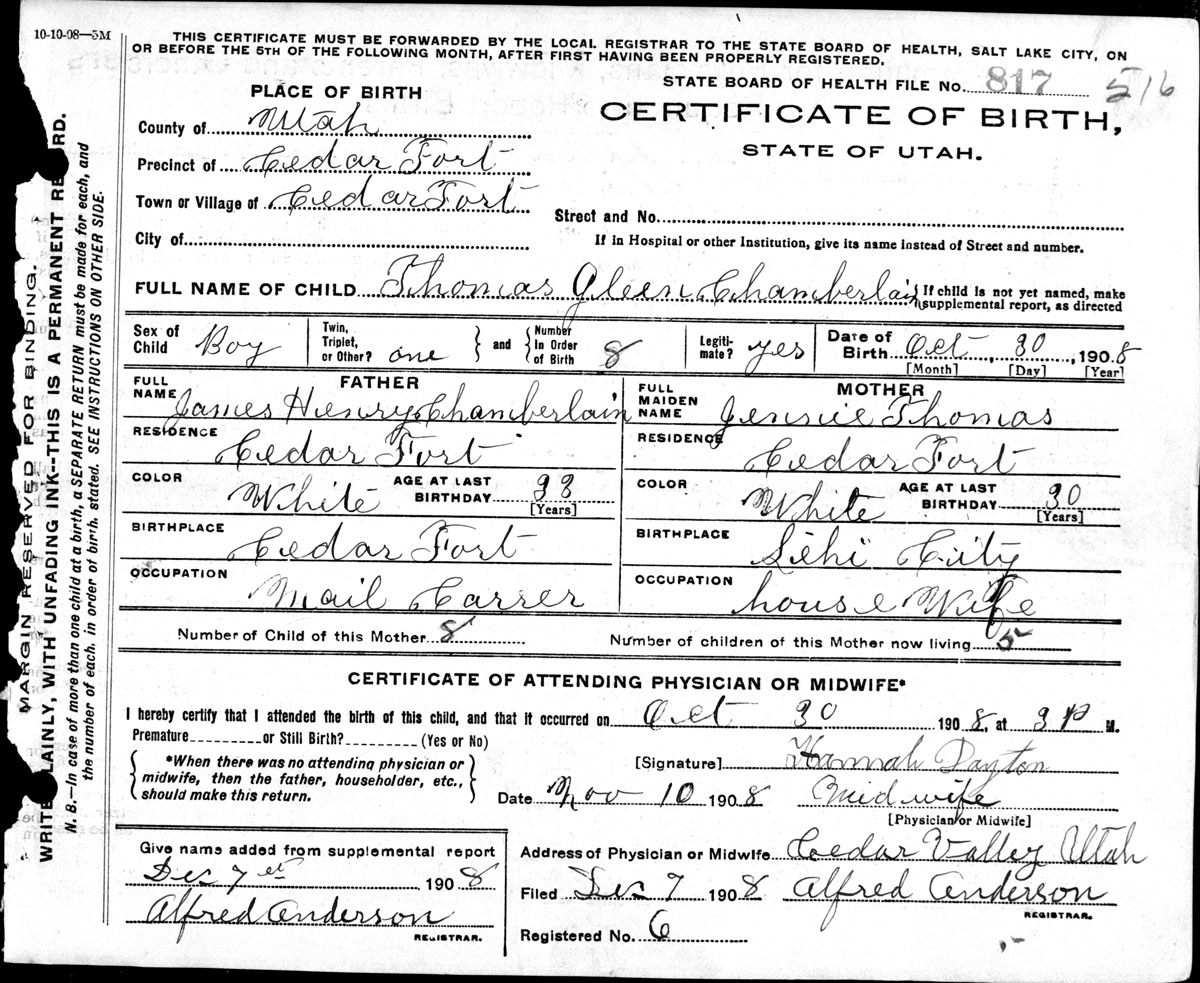 10-10-08—5M
THIS CERTIFICATE MUST BE FORWARDED BY THE LOCAL REGISTRAR TO THE STATE BOARD OF HEALTH, SALT LAKE CITY, ON
OR BEFORE THE 5TH OF THE FOLLOWING MONTH, AFTER FIRST HAVING BEEN PROPERLY REGISTERED.
STATE BOARD OF HEALTH FILE NO. 817 516
PLACE OF BIRTH
CERTIFICATE OF BIRTH,
STATE OF UTAH.
County of Utah
Precinct of Cedar Fort
Town or Village of Cedar Fort
Street and No.
City of
If in Hospital or other Institution, give its name instead of Street and number.
FULL NAME OF CHILD Thomas Gleen Chamberlain { If child is not yet named, make
supplemental report, as directed
Sex of Child Boy Twin, Triplet, or Other? one } and { Number In Order of Birth 8 Legiti-mate? yes Date of Birth Oct, 30, 1908
[Month] [Day] [Year]
FATHER MOTHER
FULL NAME James Henry Chamberlain FULL MAIDEN NAME Jennie Thomas
RESIDENCE Cedar Fort RESIDENCE Cedar Fort
COLOR White AGE AT LAST BIRTHDAY 38 [Years] COLOR White AGE AT LAST BIRTHDAY 30 [Years]
BIRTHPLACE Cedar Fort BIRTHPLACE Lehi City
OCCUPATION Mail Carrer OCCUPATION house Wife
Number of Child of this Mother 8 Number of children of this Mother now living 5
CERTIFICATE OF ATTENDING PHYSICIAN OR MIDWIFE*
I hereby certify that I attended the birth of this child, and that it occurred on Oct 30 1908, at 3 P M.
Premature or Still Birth? (Yes or No)
{ *When there was no attending physician or
midwife, then the father, householder, etc.,
should make this return. }
[Signature] Hannah Dayton
Date Nov 10 1908 Midwife
[Physician or Midwife]
Give name added from supplemental report
Dec 7 et 1908
Alfred Anderson
REGISTRAR.
Address of Physician or Midwife Cedar Valley Utah
Filed Dec 7 1908 Alfred Anderson
REGISTRAR.
Registered No. 6
MARGIN RESERVED FOR BINDING.
WRITE LAINLY, WITH UNFADING INK--THIS IS A PERMANENT RE RD.
N. B.—In case of more than one child at a birth, a SEPARATE RETURN must be made for each, and
the number of each, in order of birth, stated. SEE INSTRUCTIONS ON OTHER SIDE.